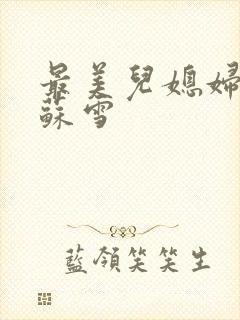 最美兒媳婦
蘇雪
藍領笑笑生